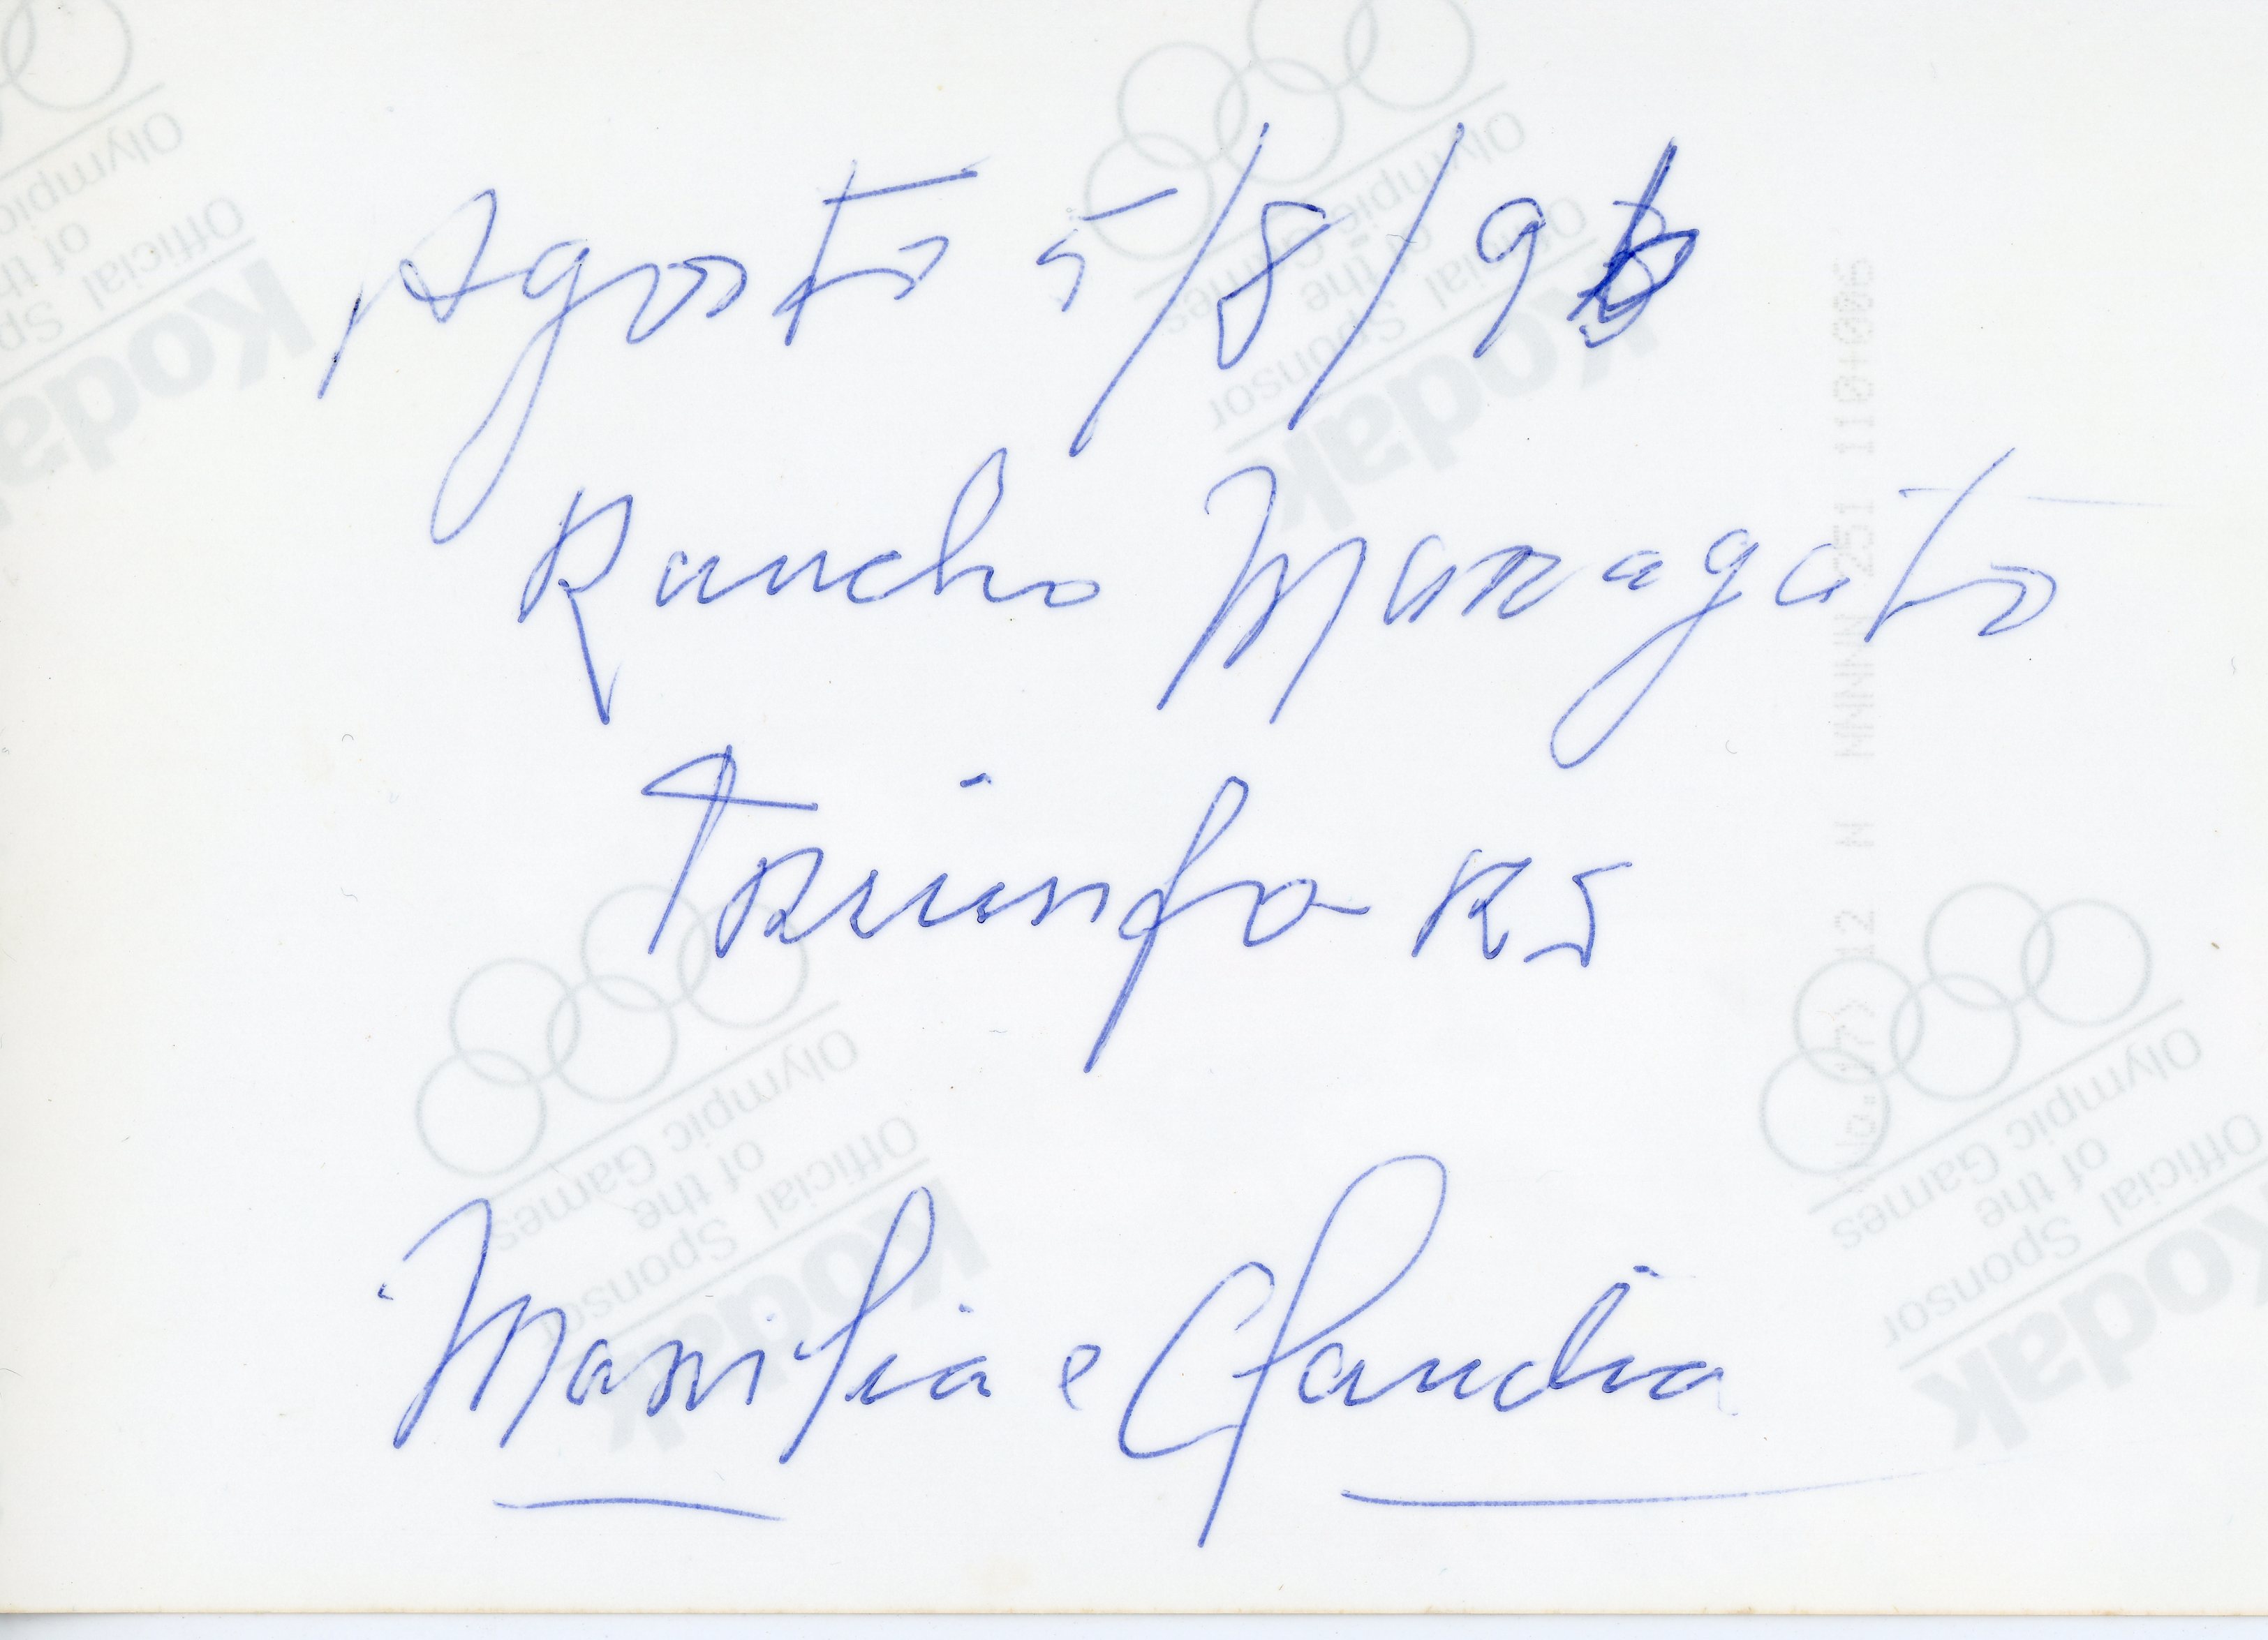 Agosto 5/8/96
Rancho Maragato
Triunfo RS
Marilia e Claudia
Kodak
Official
Sponsor
of the
Olympic Games
Kodak
Official
Sponsor
of the
Olympic Games
Kodak
Official
Sponsor
of the
Olympic Games